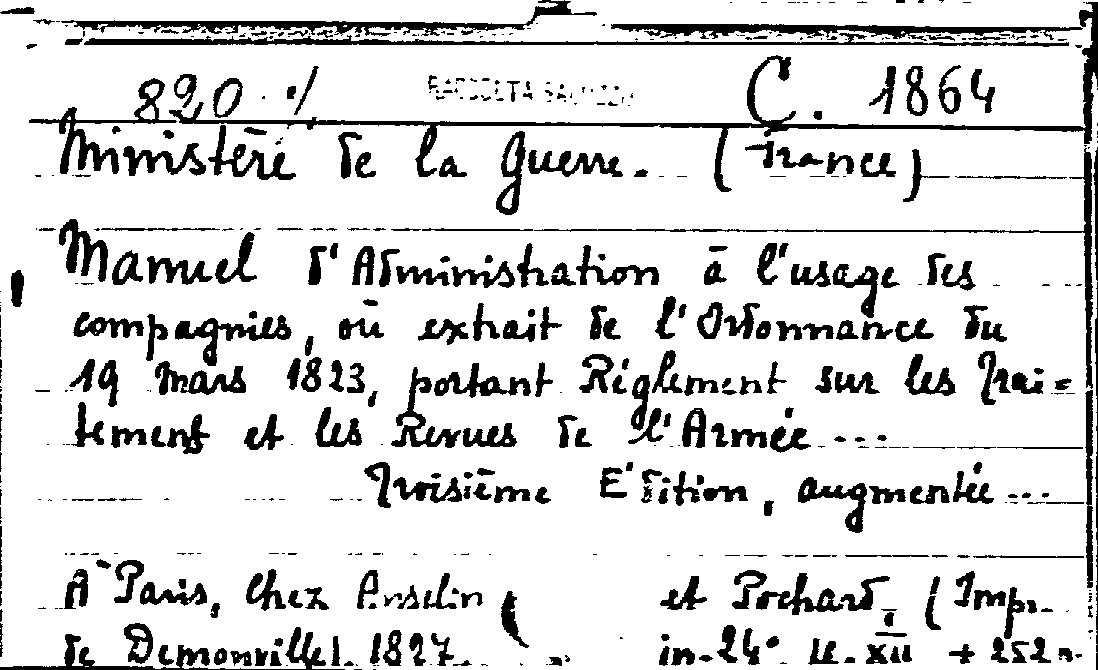 820 ·/. RACCOLTA C. 1864
Ministère de la Guerre. (France)
Manuel d'Administration à l'usage des
compagnies, où extrait de l'Ordonnance du
19 mars 1823, portant Réglement sur les Trai=
tements et les Revues de l'Armée ...
Troisième Edition, augmentée ...
A Paris, chez Anselin et Pochard, (Impr.
de Demonville). 1827. in-24°. XII + 252 p.